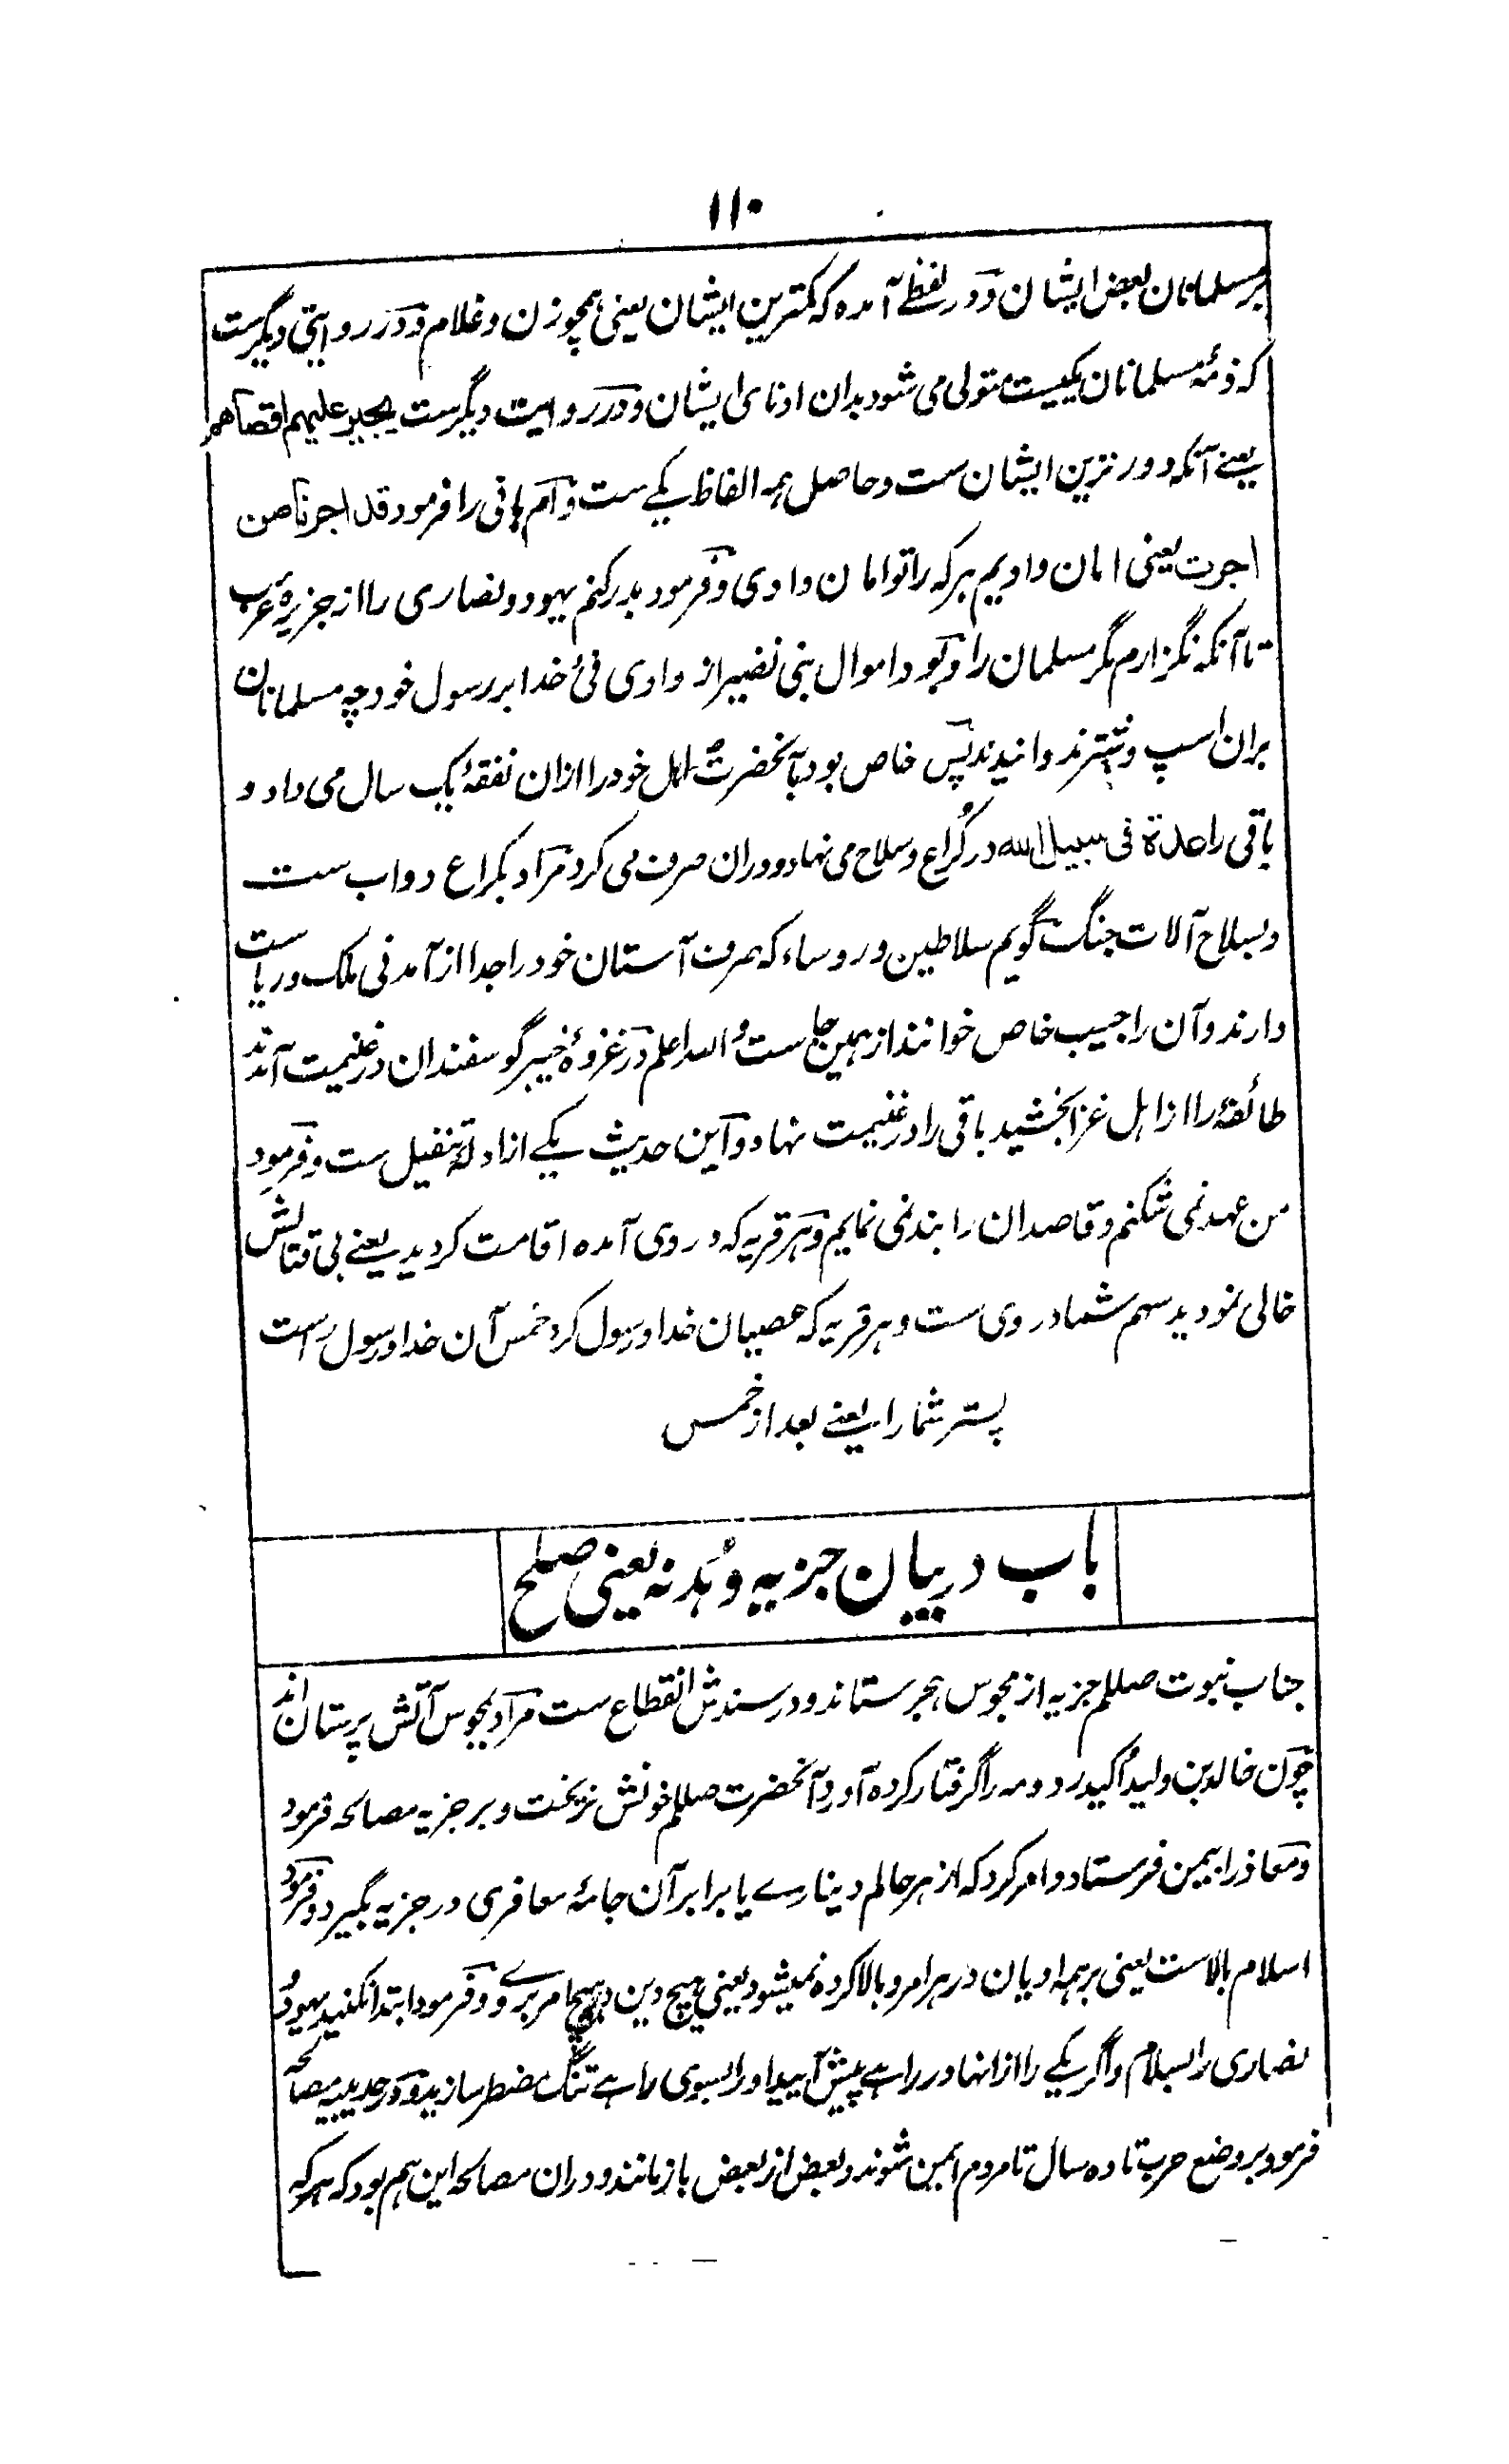 ۱۱۰
بر مسلمانان بعض ایشان و در لفظے آمده که کمترین ایشان یعنی همچو زن و غلام و در روایتی دیگرست
که ذمّهٔ مسلمانان یکیست متولی می شود بدان ادنای ایشان و در روایت دیگرست یجیر علیهم اقصاهم
یعنے آنکه دور ترین ایشان ست و حاصل همه الفاظ یکے ست و ام هانی را فرمود قد اجرنا من
اجرت یعنی امان دادیم هر که را تو امان دادی و فرمود بدر کنم یهود و نصاری را از جزیرهٔ عرب
تا آنکه نگزارم مگر مسلمان را و بود اموال بنی نضیر از وادی فئ خدا بر رسول خود چه مسلمانان
بران اسپ و شتر ندوانیدند پس خاص بود بآنحضرت اهل خود را ازان نفقهٔ یک سال می داد و
باقی را عدة فی سبیل الله در کُراع و سلاح می نهاد و دران صرف می کرد مراد بکراع دواب ست
و بسلاح آلات جنگ گویم سلاطین و روساء که صرف آستان خود را جدا از آمدنی ملک و ریاست
دارند و آن را جیب خاص خوانند از همین جا ست و الله اعلم در غزوهٔ خیبر گوسفندان در غنیمت آمدند
طائفهٔ را از اهل غزا بخشید باقی را در غنیمت نهاد و این حدیث یکے از ادلهٔ تنفیل ست و فرمود
من عهد نمی شکنم و قاصدان را بند نمی نمایم و هر قریه که در وی آمده اقامت کردید یعنے بی قتالش
خالی نمودید سهم شما در وی ست و هر قریه که عصیان خدا و رسول کرد خمس آن خدا و رسول راست
پستر شما را یعنے بعد از خمس
باب در بیان جزیه و هُدنه یعنی صلح
جناب نبوت صللم جزیه از مجوس هجر ستاند و در سندش انقطاع ست مراد بمجوس آتش پرستان اند
چون خالد بن ولید اُکیدر دومه را گرفتار کرده آورد آنحضرت صللم خونش نریخت و بر جزیه مصالحه فرمود
و معاذ را بیمن فرستاد و امر کرد که از هر حالم دینارے یا برابر آن جامهٔ معافری در جزیه بگیرد و فرمود
اسلام بالاست یعنی بر همه ادیان در هر امر و بالا کرده نمیشود یعنی هیچ دین در هیچ امر بروے و فرمود ابتدا نکنید یهود و
نصاری را بسلام و اگر یکے را ازانها در راهے پیش آیید او را بسوی راهے تنگ مضطر سازید و در حدیبیه مصالحه
فرمود بر وضع حرب تا ده سال تا مردم ایمن شوند و بعض از بعض باز مانند و دران مصالحه این هم بود که هر که